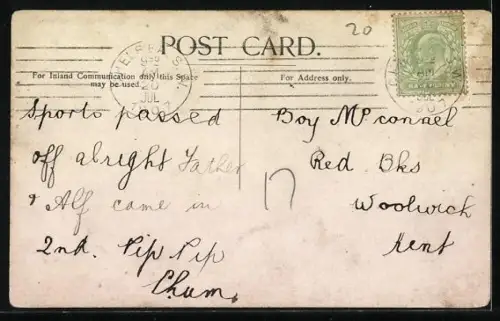 20
POST CARD.
For Inland Communication only this Space
may be used.
For Address only.
JUL
Sports passed
off alright Father
& Alf came in
2nd. Pip Pip
Chum.
Boy McConnel
Red Bks
Woolwich
Kent
17